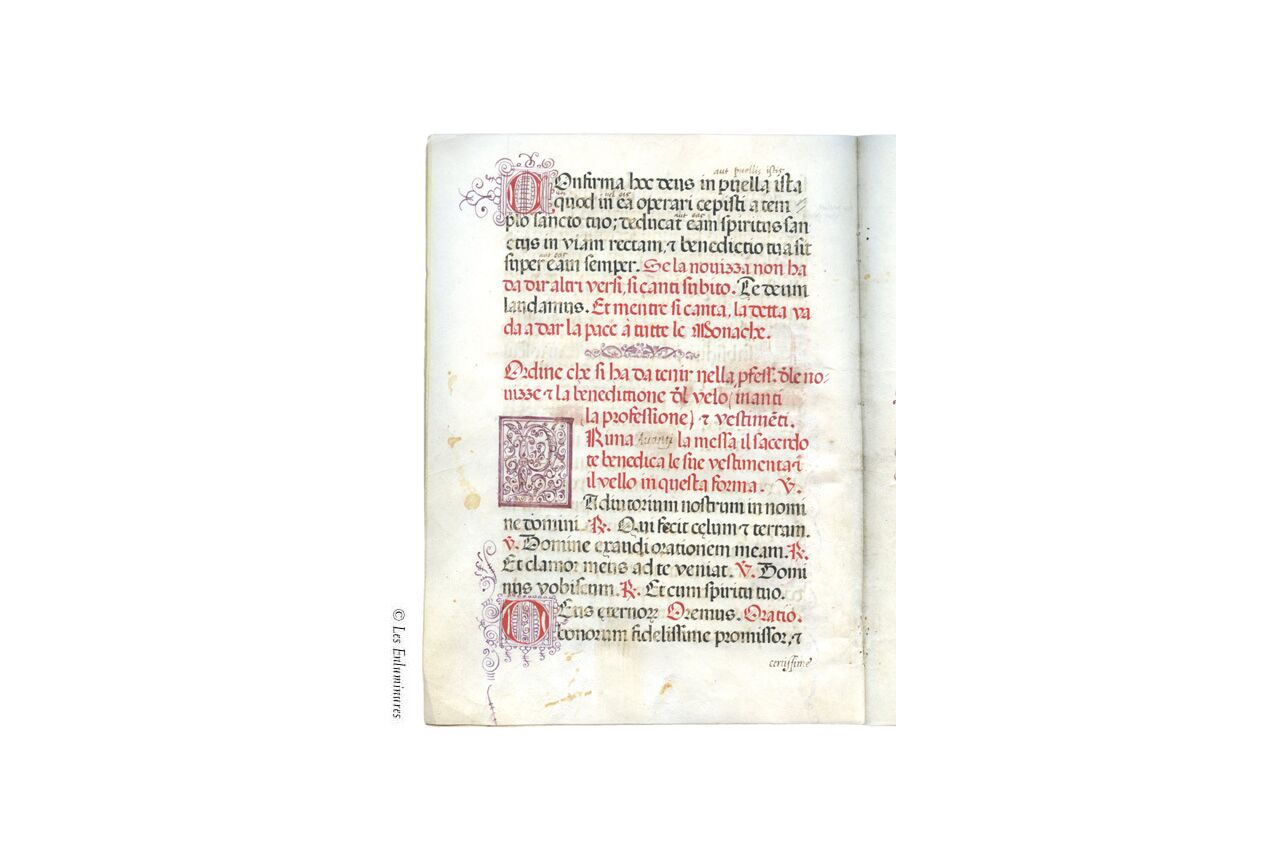 aut puellis istis
Confirma hoc deus in puella ista
vel eis
quod in ea operari cepisti a tem
plo sancto tuo; deducat eam spiritus san
aut eas
ctus in viam rectam, ⁊ benedictio tua sit
aut eas
super eam semper. Se la novizza non ha
da dir altri versi, si canti subito. Te deum
laudamus. Et mentre si canta, la detta va
da a dar la pace à tutte le Monache.
Ordine che si ha da tenir nella pfess. dle no
vizze ⁊ la benedittione dl velo (inanti
la professione) ⁊ vestimēti.
PRima la messa il sacerdo
te benedica le sue vestimenta ⁊
il vello in questa forma. V.
Adiutorium nostrum in nomi
ne domini. R. Qui fecit cęlum ⁊ terram.
V. Domine exaudi orationem meam. R.
Et clamor meus ad te veniat. V. Domi
nus vobiscum. R. Et cum spiritu tuo.
DEus eternorꝝ Oremus. Oratio.
bonorum fidelissime promissor, ⁊
certissime
© Les Enluminures